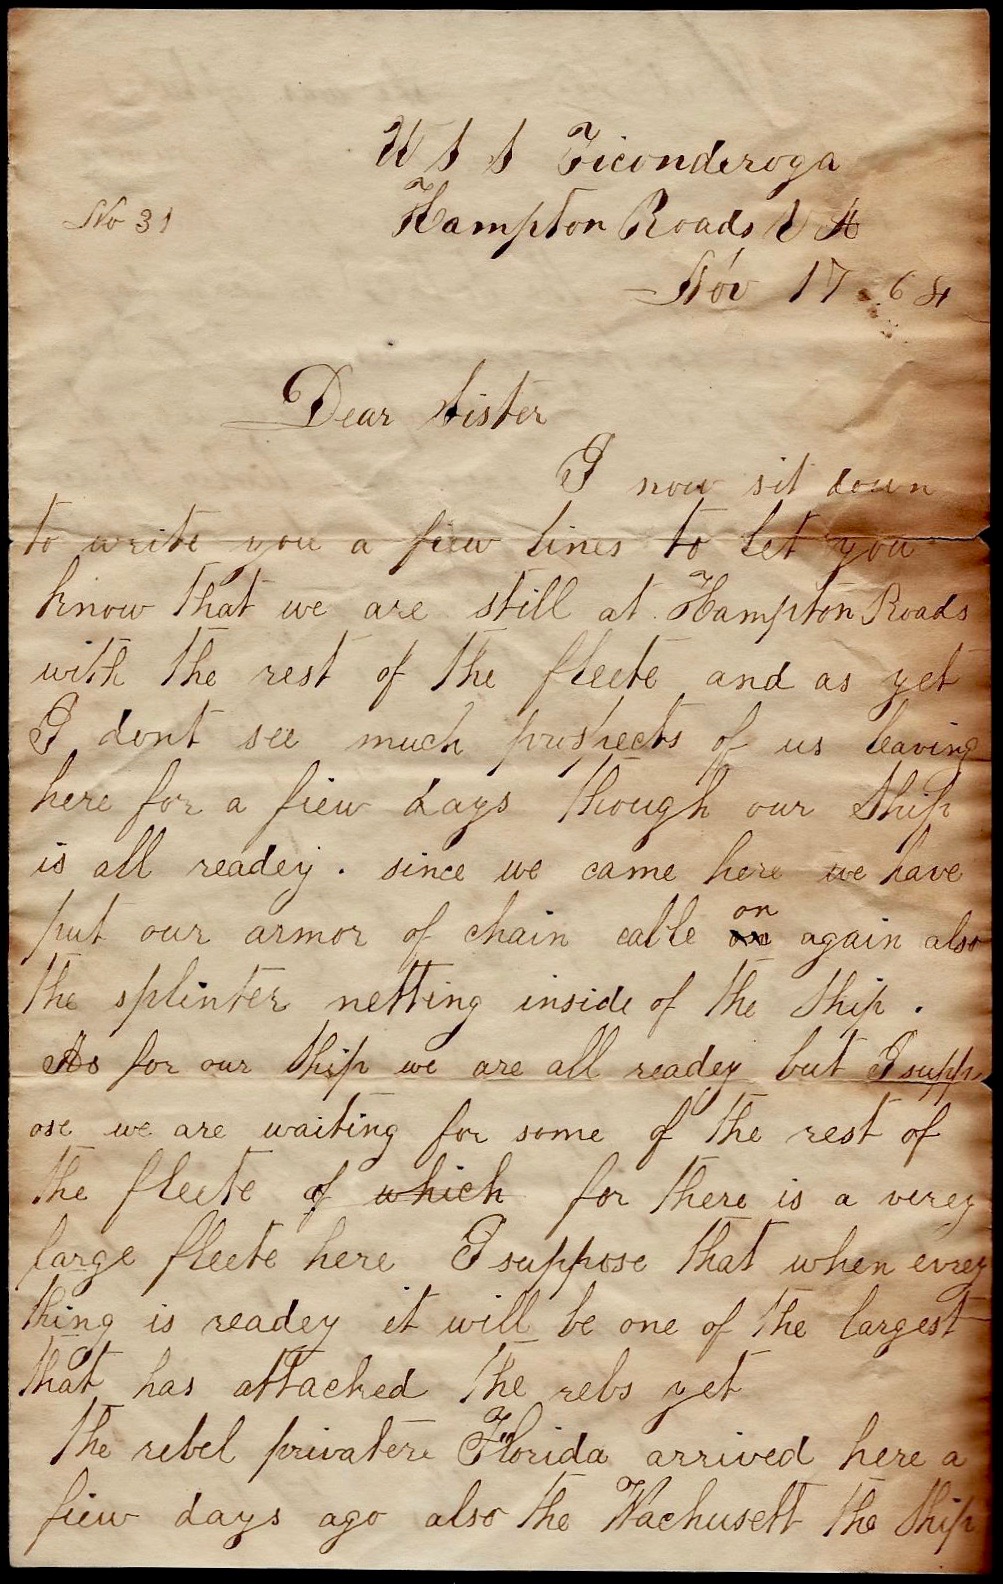 U S S Ticonderoga
No 31 Hampton Roads V A
Nov 17 64
Dear Sister
I now sit down
to write you a fiew lines to let you
know that we are still at Hampton Roads
with the rest of the fleete and as yet
I dont see much prospects of us leaving
here for a fiew days though our Ship
is all readey . since we came here we have
put our armor of chain cable on again also
the splinter netting inside of the Ship .
As for our Ship we are all readey but I supp
ose we are waiting for some of the rest of
the fleete of which for there is a verey
large fleete here I suppose that when evrey
thing is readey it will be one of the largest
that has attacked the rebs yet
the rebel privatere Florida arrived here a
fiew days ago also the Wachusett the Ship